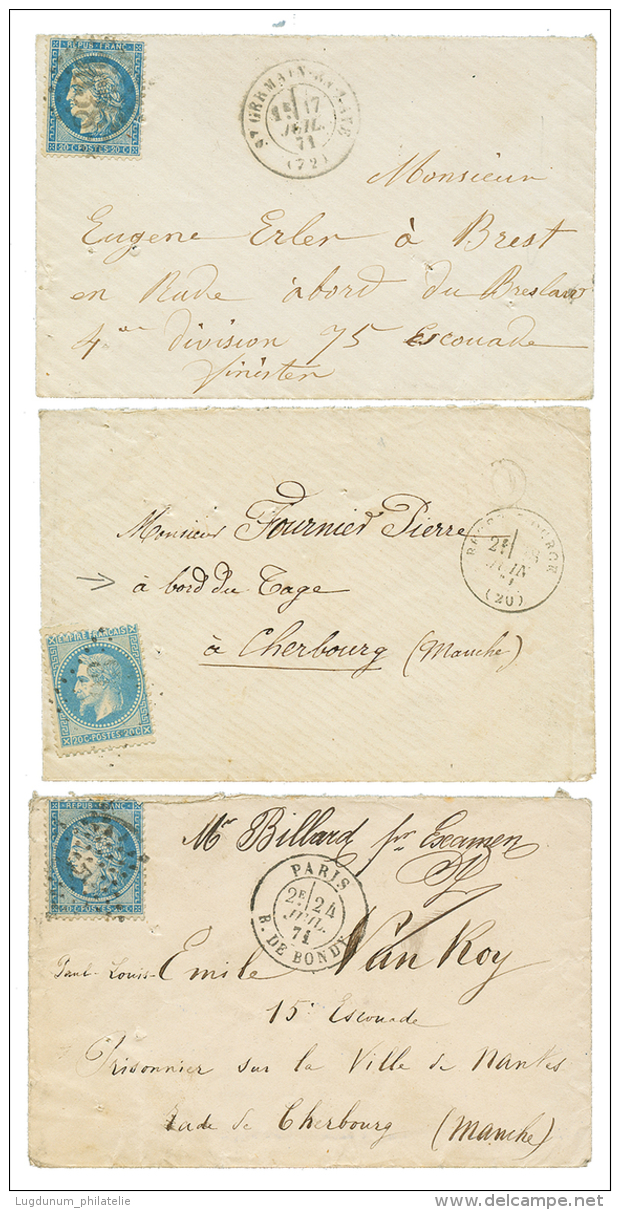 REPUB. FRANC.
20 C. POSTES 20 C.
ST GERMAIN-EN-LAYE
1E 17
JUIL.
71
(72)
Monsieur
Eugene Erler à Brest
en Rade à bord du Breslaw
4me division 75 Escouade
Finister
2E
JUIN
71
(20)
Monsieur Fournier Pierre
à bord du Tage
à Cherbourg (Manche)
EMPIRE FRANCAIS
20 C. POSTES 20 C.
REPUB. FRANC.
20 C. POSTES 20 C.
Mr Billard pr Examen
PARIS
2E 24
JUIL.
71
B. DE BONDY
Paul-Louis-Emile Van Roy
15e Escouade
Prisonnier sur la Ville de Nantes
Rade de Cherbourg (Manche)
Lugdunum_philatelie
delcampe.net